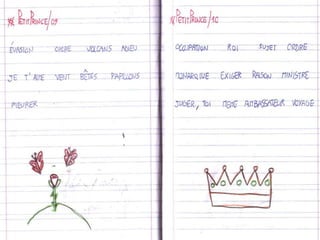 PETIT PRINCE / 09
ÉVASION CLOCHE VOLCANS ADIEU
JE T'AIME VENT BÊTES PAPILLONS
MEURER
PETIT PRINCE / 10
OCCUPATION ROI SUJET ORDRE
MONARQUE EXIGER RAISON MINISTRE
JUGER, TOI MÊME AMBASSADEUR VOYAGE